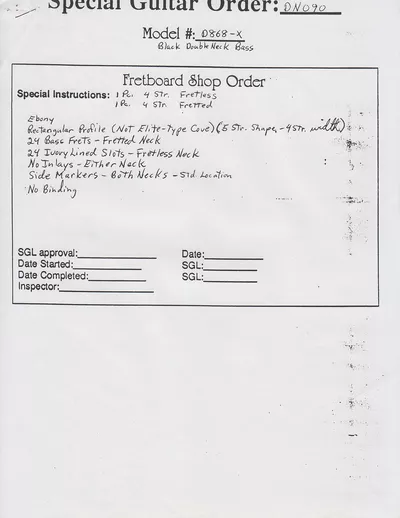 Special Guitar Order: DN090
Model #: D868-X
Black Double Neck Bass
Fretboard Shop Order
Special Instructions: 1 Pc. 4 Str. Fretless
1 Pc. 4 Str. Fretted
Ebony
Rectangular Profile (Not Elite-Type Cove) (5 Str. Shape, -4 Str. width)
24 Bass Frets - Fretted Neck
24 Ivory Lined Slots - Fretless Neck
No Inlays - Either Neck
Side Markers - Both Necks - Std. Location
No Binding
SGL approval: Date:
Date Started: SGL:
Date Completed: SGL:
Inspector: